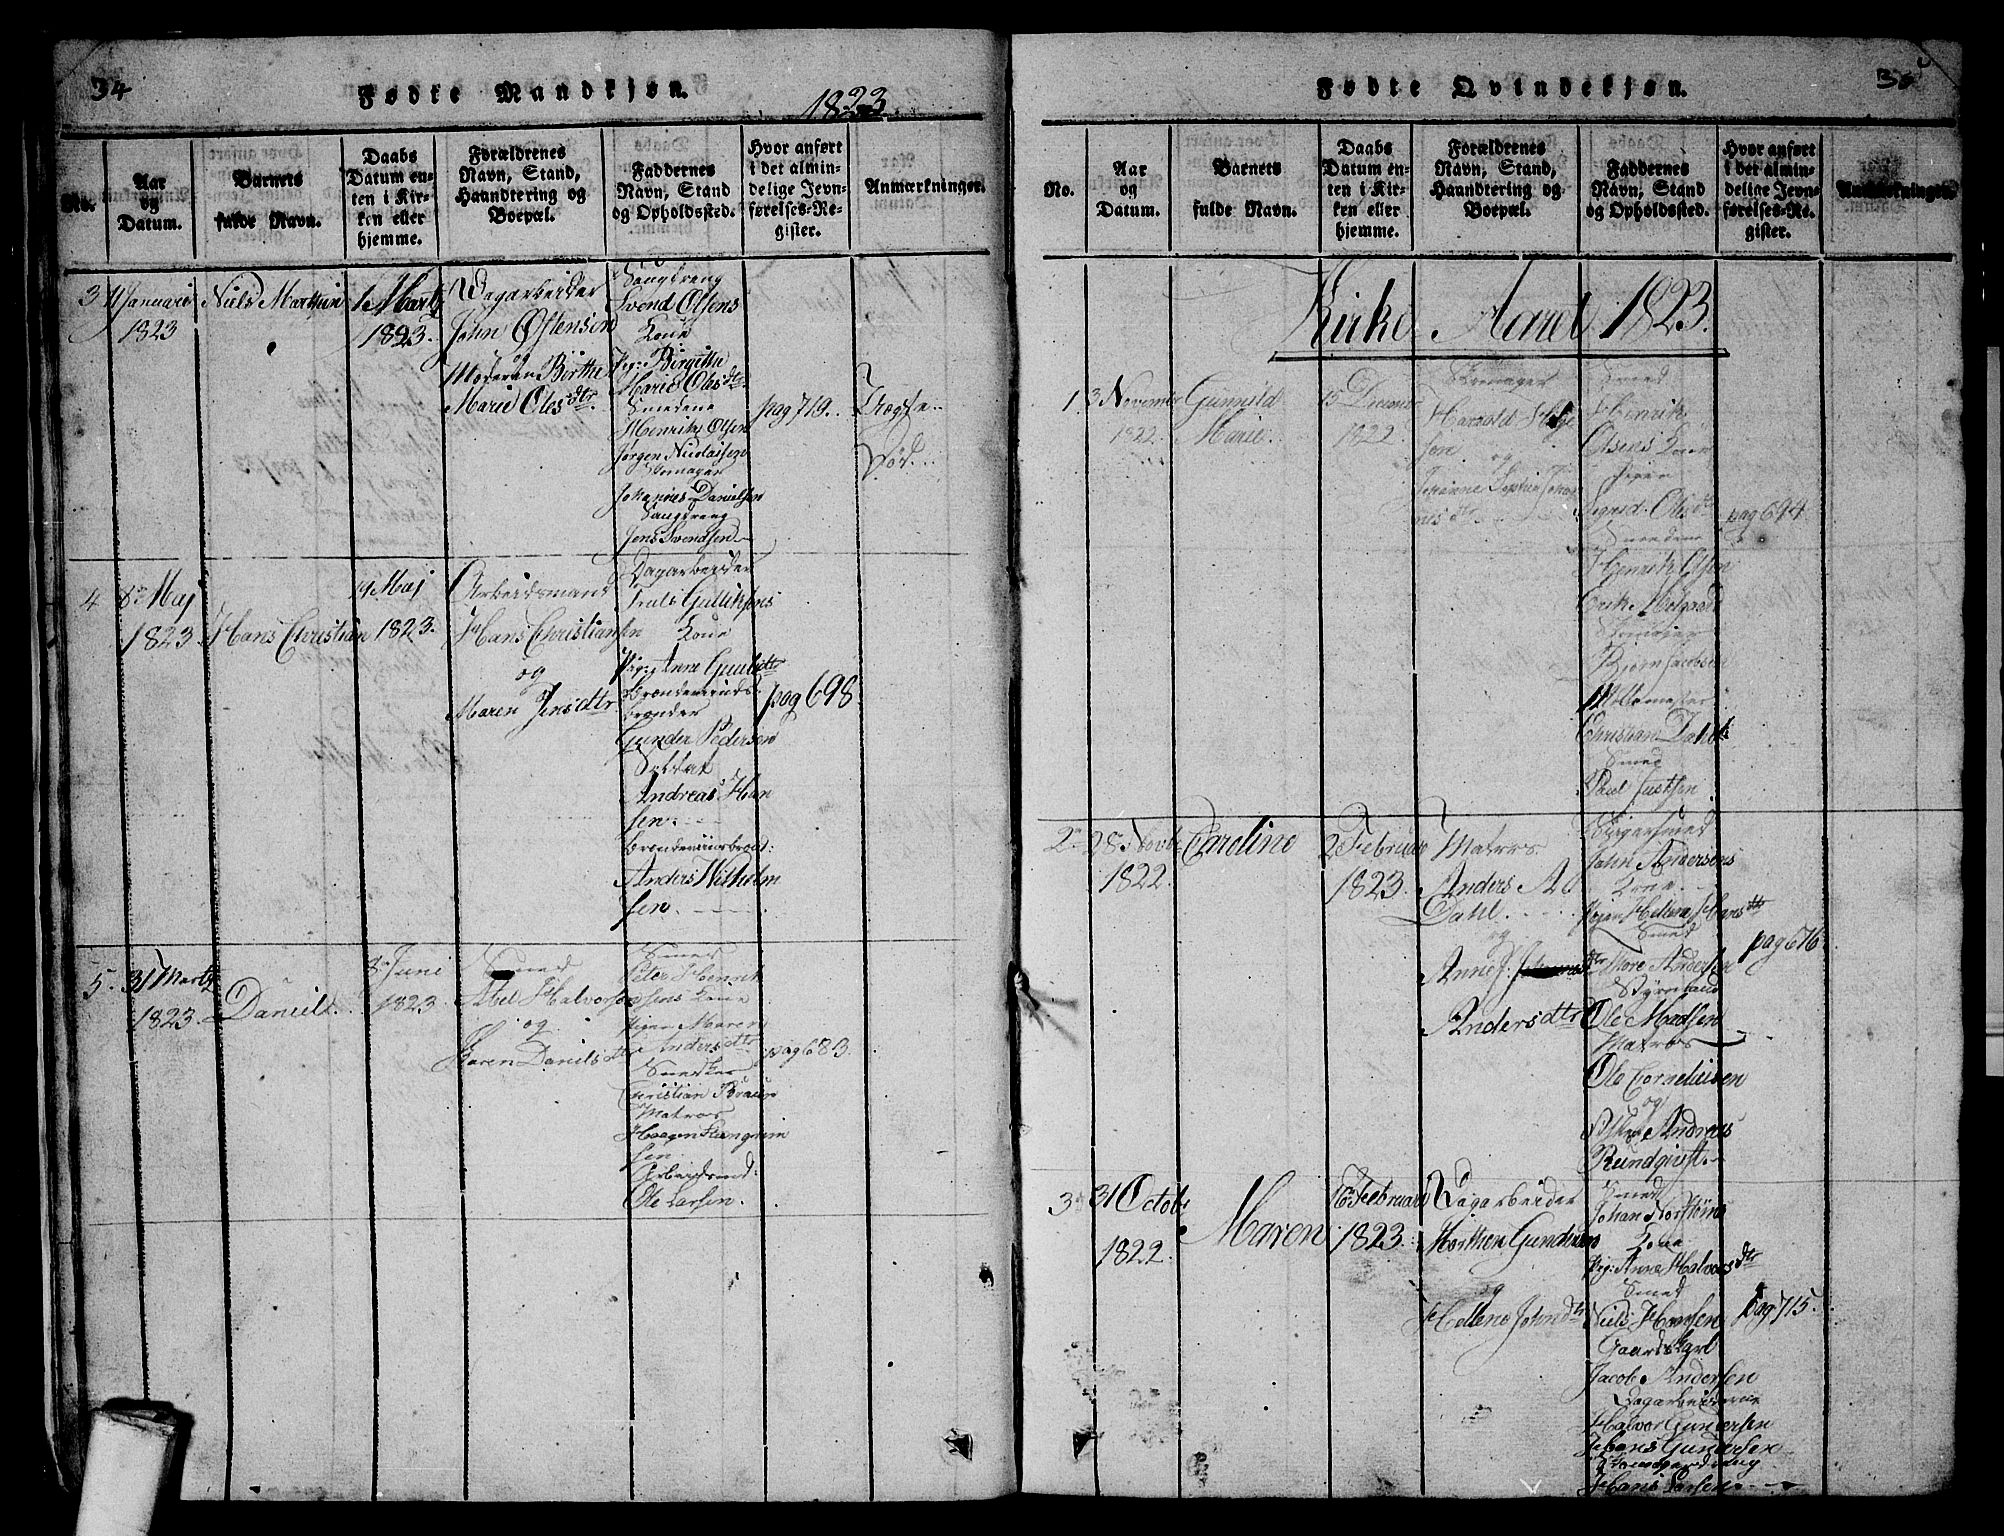 34
Fødte Mandkjøn.
1823
No.
Aar
og
Datum.
Barnets
fulde Navn.
Daabs
Datum en-
ten i Kir-
ken eller
hjemme.
Forældrenes
Navn, Stand,
Haandtering og
Boepæl.
Faddernes
Navn, Stand
og Opholdssted.
Hvor anført
i det almin-
delige Jevn-
førelses-Re-
gister.
Anmærkninger.
3
Januari
1823
Niels Marthin
1 Marti
1823.
Dagarbeider
John Østensen
og
Moderen Birthe
Marie Oles dtr.
Saugdreng
Svend Olsens
Kone
Pig: Birgithe
Marie Oles dtr
Smedene
Henrik Olsen
Jørgen Nicolaisen
Skomager
Johannes Danielsen
Saugdreng
Jens Svendsen
pag 719.
4
8de Maj
1823.
Hans Christian
19 Maj
1823.
Arbeidsmand
Hans Christiansen
og
Maren Jensdtr
Dagarbeider
Truls Gulliksens
Kone
Pig: Anne Gulbdtr
brænder
Gunder Pedersen
Soldat
Andreas Han
sen.
Anders Wilhelm
sen.
pag 698.
5.
31 Martz
1823.
Daniel
8de Juni
1823.
Smed
Abel Halvorsen
og
Karen Daniels dtr
Smed
Peter Henrik
sens Kone
Pigen Maren
Anders dtr
Snedker
Christian Braun
Matros
Haagen
sen
Arbeidsmd:
Ole Larsen.
pag 683.
Fødte Qvindekjøn.
35
No.
Aar
og
Datum.
Barnets
fulde Navn.
Daabs
Datum en-
ten i Kir-
ken eller
hjemme.
Forældrenes
Navn, Stand,
Haandtering og
Boepæl.
Faddernes
Navn, Stand
og Opholdssted.
Hvor anført
i det almin-
delige Jevn-
førelses-Re-
gister.
Anmærkninger.
Kirke Aaret 1823.
1
3 November
1822.
Gunnild
Marie.
15 December
1822.
Skomager
Harald Helge
sen
og
Johanne Sophie Johan
nes dtr
Smed
Henrik
Olsens Kone
Pigen
Sigrid Oles dtr
Smedene
Henrik Olsen
Erik Melgaard
Skomager
Bjørn Jacobsen
Møllemester
Christian Dahl
Smed
Paul Justsen
pag 694.
2
28 Novb
1822.
Caroline
2 Februar
1823.
Matros
Anders A
Dahl.
og
Anne J.
Andersdtr
Smed
John Andersens
Kone
Pigen Hellena Hans dtr
Smed
Tore Andersen
Styrmand
Ole Madsen
Matros
Ole Corneliusen
og
Andreas
Rundqvist.
pag 676.
3
31 Octob
1822.
Maren
16 Februar
1823.
Dagarbeider
Morthen Gundersen
og
Hellene Johns dtr
Smed
Johan Norstrøms
Kone
Pig: Anne Halvors dtr
Smed
Niels Hansen
Gaards Karl
Jacob Andersen
Dagarbeiderne
Halvor Gundersen
Hans Gundersen
Hans Larsen
pag 715.